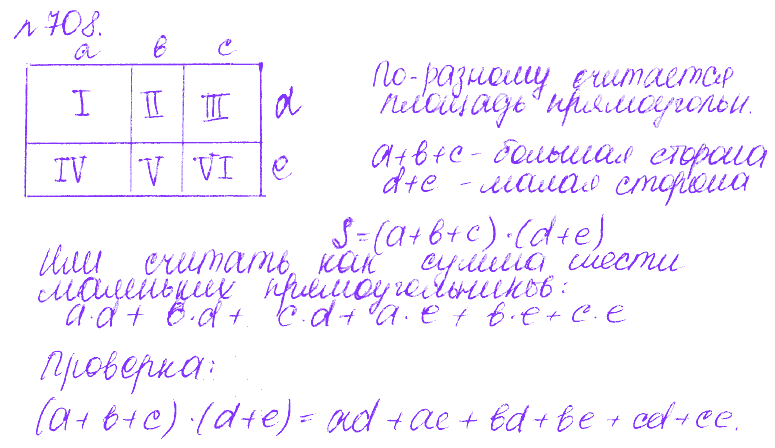 №708.
a b c
I II III d
IV V VI e
По-разному считается
площадь прямоугольн.
a+b+c - большая сторона
d+e - малая сторона
S=(a+b+c)·(d+e)
Или считать как сумма шести
маленьких прямоугольников:
a·d+ b·d+ c·d+ a·e+ b·e+c·e
Проверка:
(a+b+c)·(d+e)= ad+ae+bd+be+cd+ce.